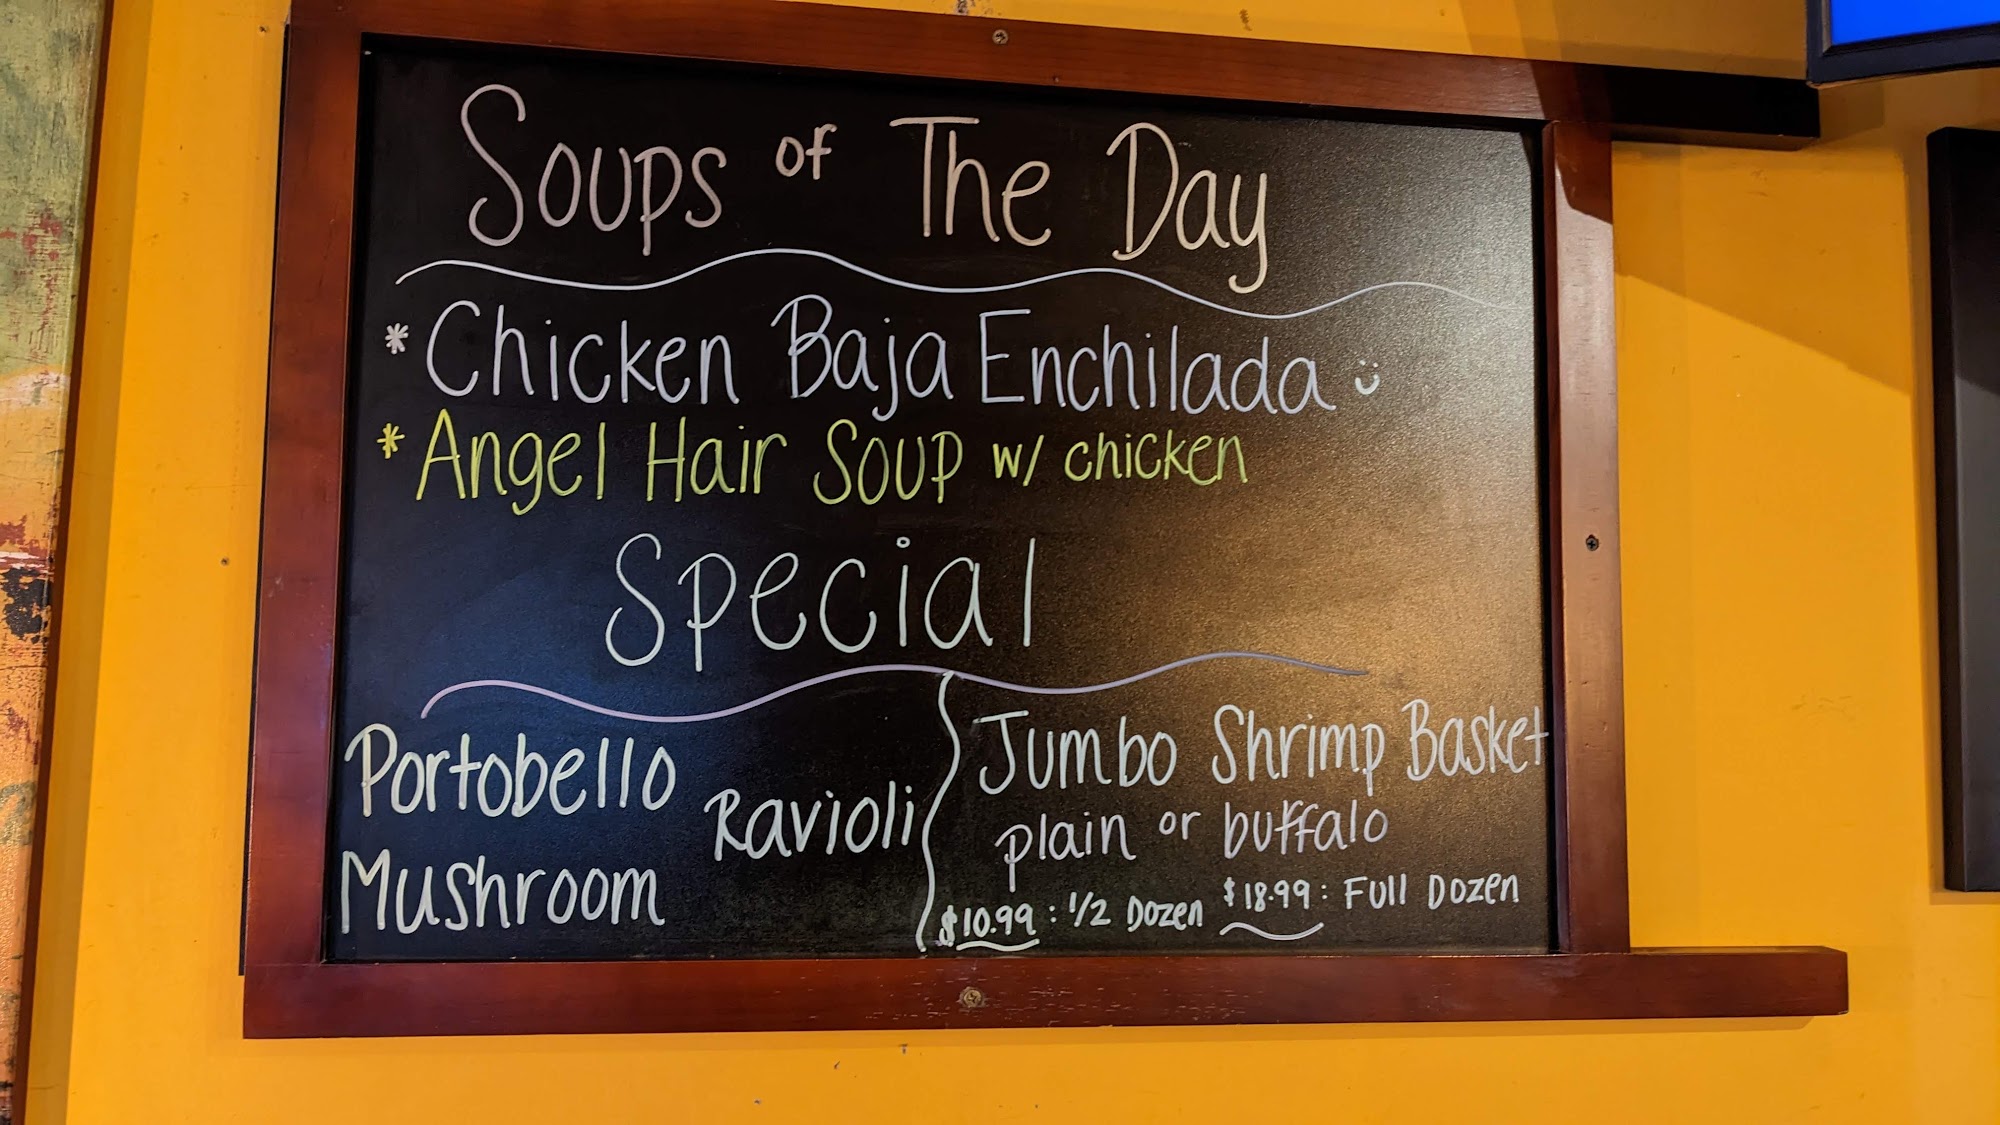 Soups of The Day
* Chicken Baja Enchilada
* Angel Hair Soup w/ chicken
Special
Portobello
Mushroom
Ravioli
Jumbo Shrimp Basket
plain or buffalo
$10.99 : 1/2 Dozen $18.99 : Full Dozen